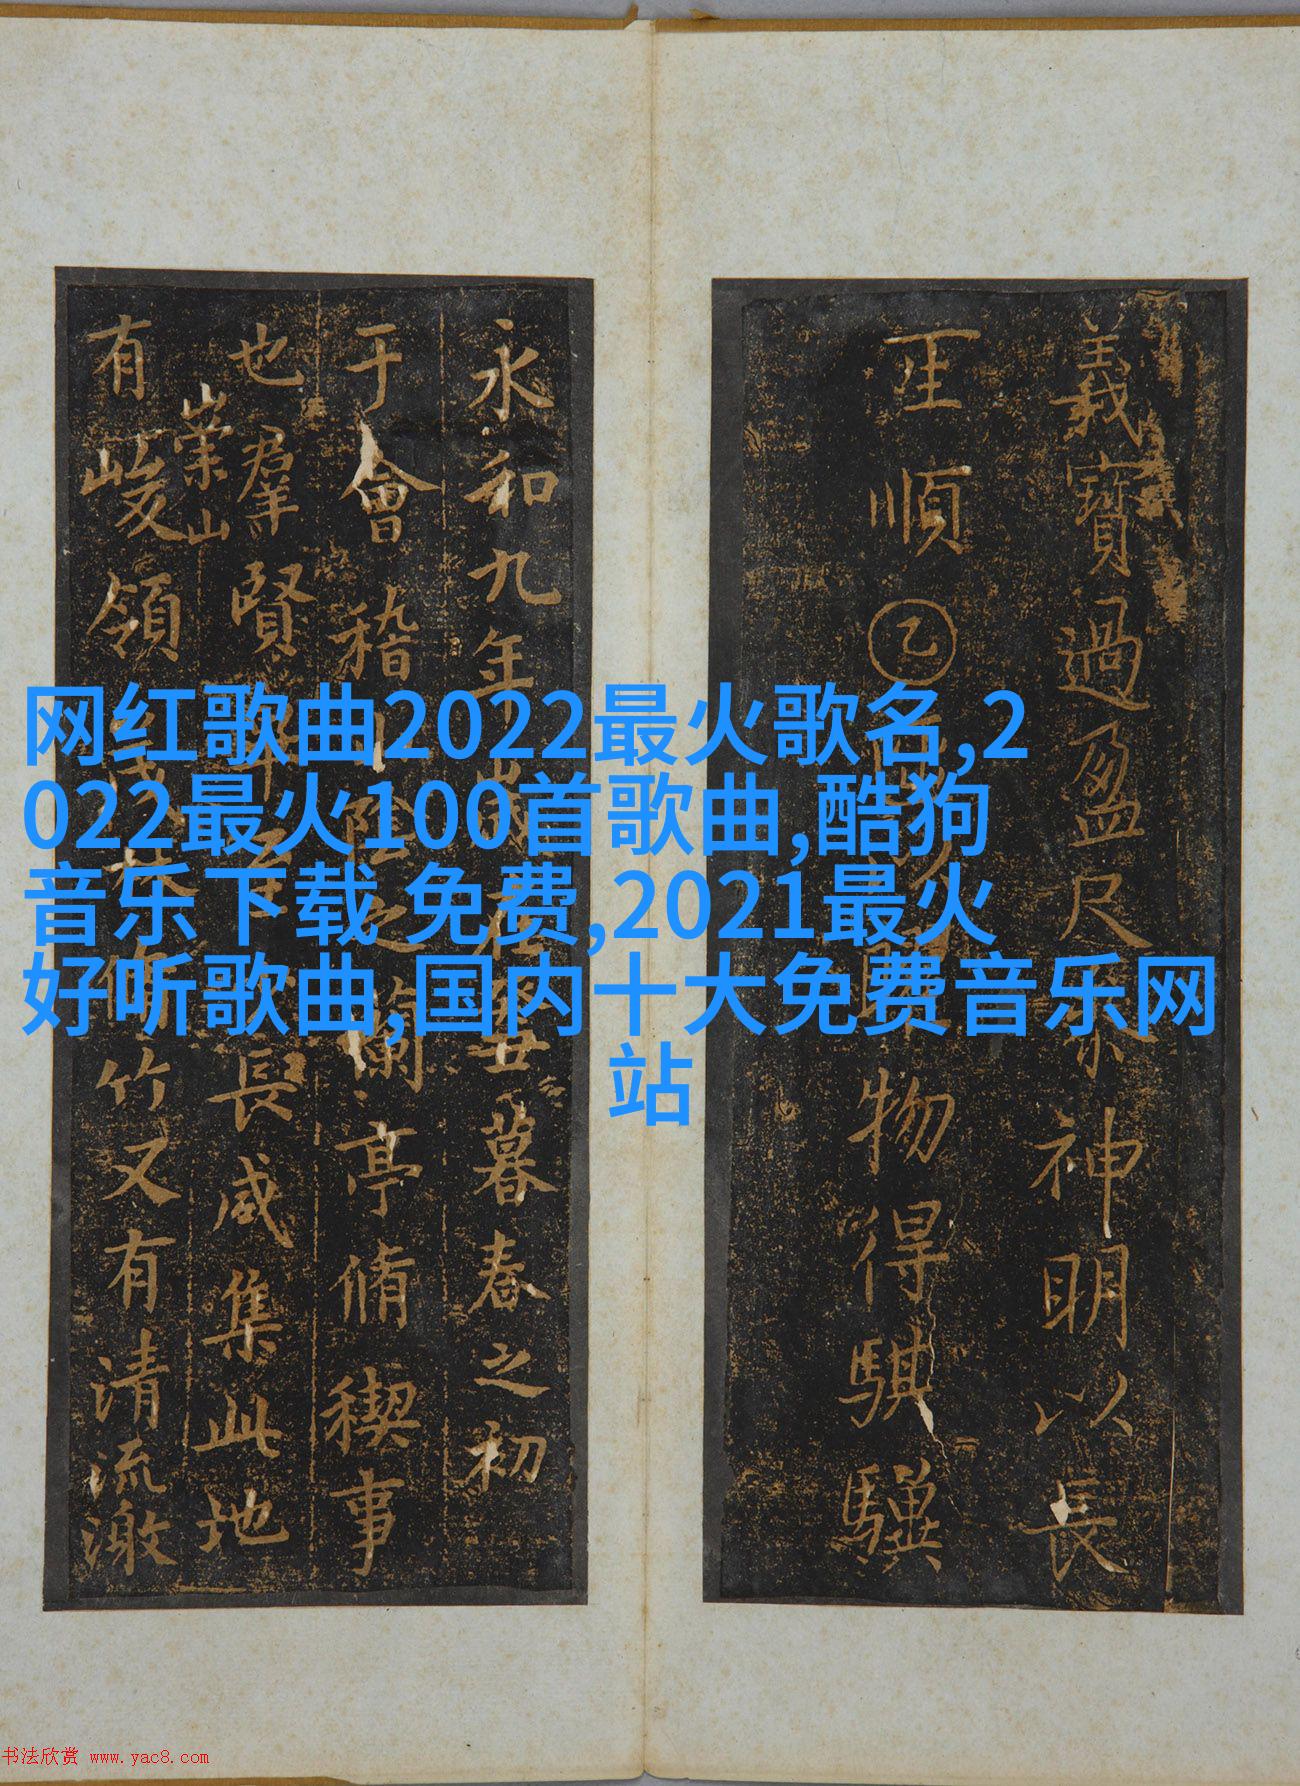 网红歌曲2022最火歌名,2
022最火100首歌曲,酷狗
音乐下载 免费,2021最火
好听歌曲,国内十大免费音乐网
站
義寶過盈尺神明以長
順乙物得騏驥
永和九年歲在癸丑暮春之初
于會稽山陰之蘭亭脩禊事
也羣賢畢至少長咸集此地
有崇山峻領茂林脩竹又有清流激
书法欣赏 www.yac8.com